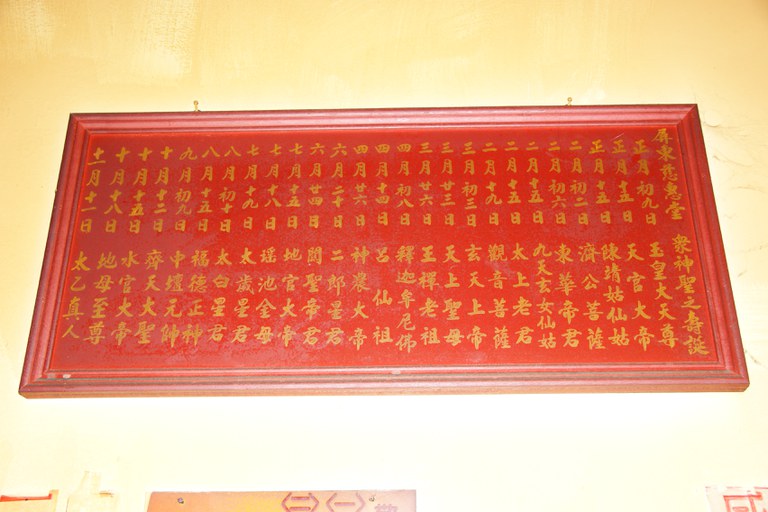 屏東慈惠堂 眾神聖之壽誕
正月初九日 玉皇大天尊
正月十五日 天官大帝
正月十五日 陳靖姑仙姑
二月初二日 濟公菩薩
二月初六日 東華帝君
二月十五日 九天玄女仙姑
二月十五日 太上老君
二月十九日 觀音菩薩
三月初三日 玄天上帝
三月廿三日 天上聖母
三月廿六日 王禪老祖
四月初八日 釋迦牟尼佛
四月十四日 呂仙祖
四月廿六日 神農大帝
六月二十日 二郎星君
六月廿四日 關聖帝君
七月十五日 地官大帝
七月十八日 瑤池金母
七月十九日 太歲星君
八月初十日 太白星君
八月十五日 福德正神
九月初九日 中壇元帥
十月十二日 齊天大聖
十月十五日 水官大帝
十月十八日 地母至尊
十一月十一日 太乙真人
(一)
(二)